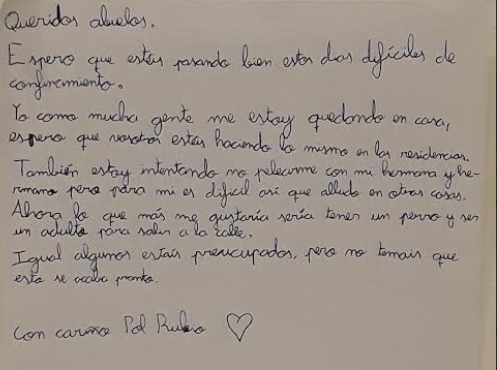 Queridos abuelos.
Espero que estéis pasando bien estos días difíciles de
confinamiento.
Yo como mucha gente me estoy quedando en casa,
espero que vosotros estáis haciendo lo mismo en las residencias.
También estoy intentando no pelearme con mi hermana y he-
rmano pero para mi es difícil así que alludo en otras cosas.
Ahora lo que más me gustaría sería tener un perro y ser
un adulto para salir a la calle.
Igual algunos estáis preocupados, pero no temáis que
esto se acaba pronto.
Con cariño Pol